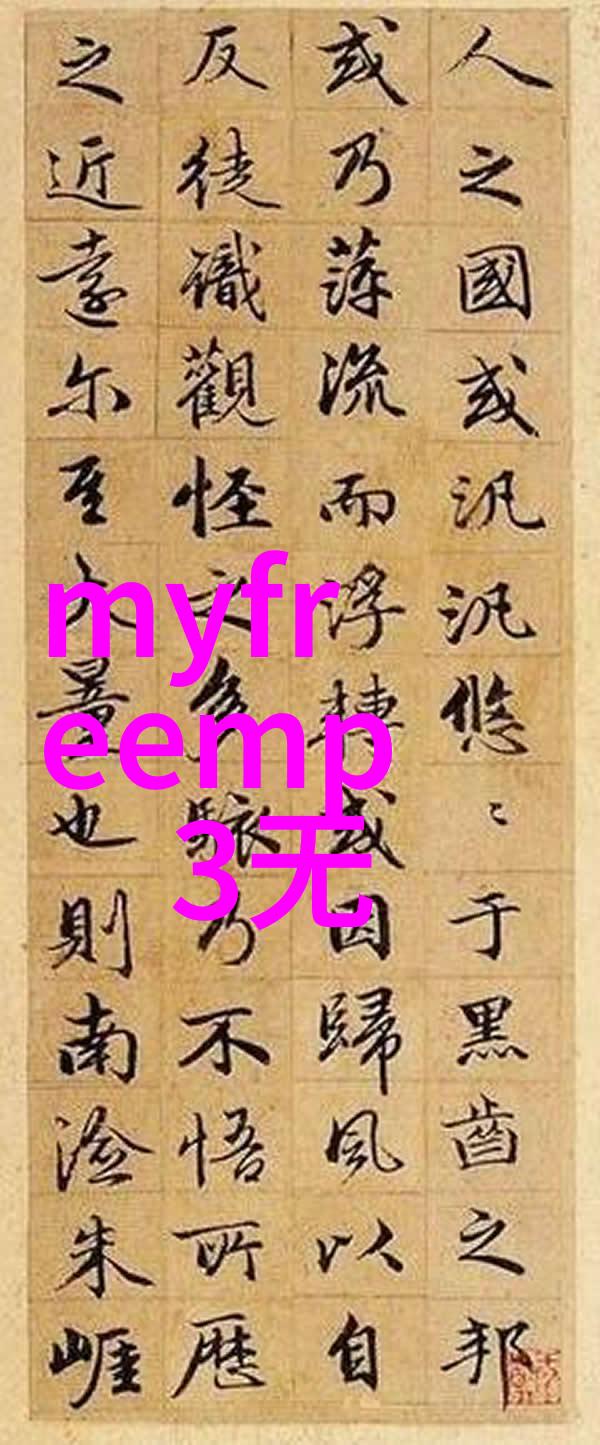 人之國或汎汎悠〻于黑齒之邦
或乃萍流而浮轉或因歸風以自
反徒識觀怪之多駭乃不悟所歷
之近遠尔至大量也則南澰朱崕
myfr
eemp
3无